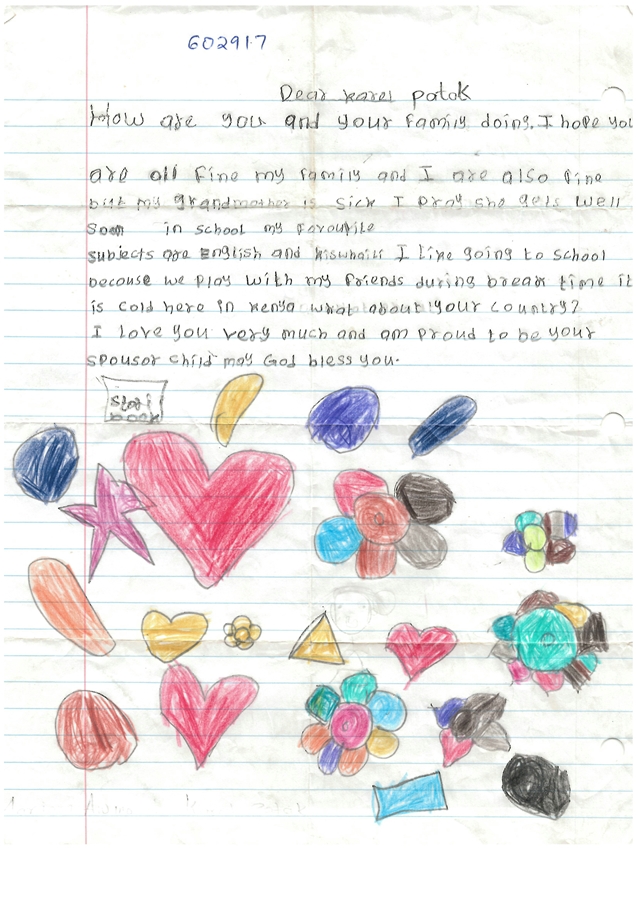 602917
Dear karel patok
How are you and your family doing. I hope you
are all fine my family and I are also fine
but my grandmother is sick I pray she gets well
soon in school my favourite
subjects are English and kiswhaili I like going to school
because we play with my friends during break time it
is cold here in kenya what about your country?
I love you very much and am proud to be your
spousor child may God bless you.
Stori
book